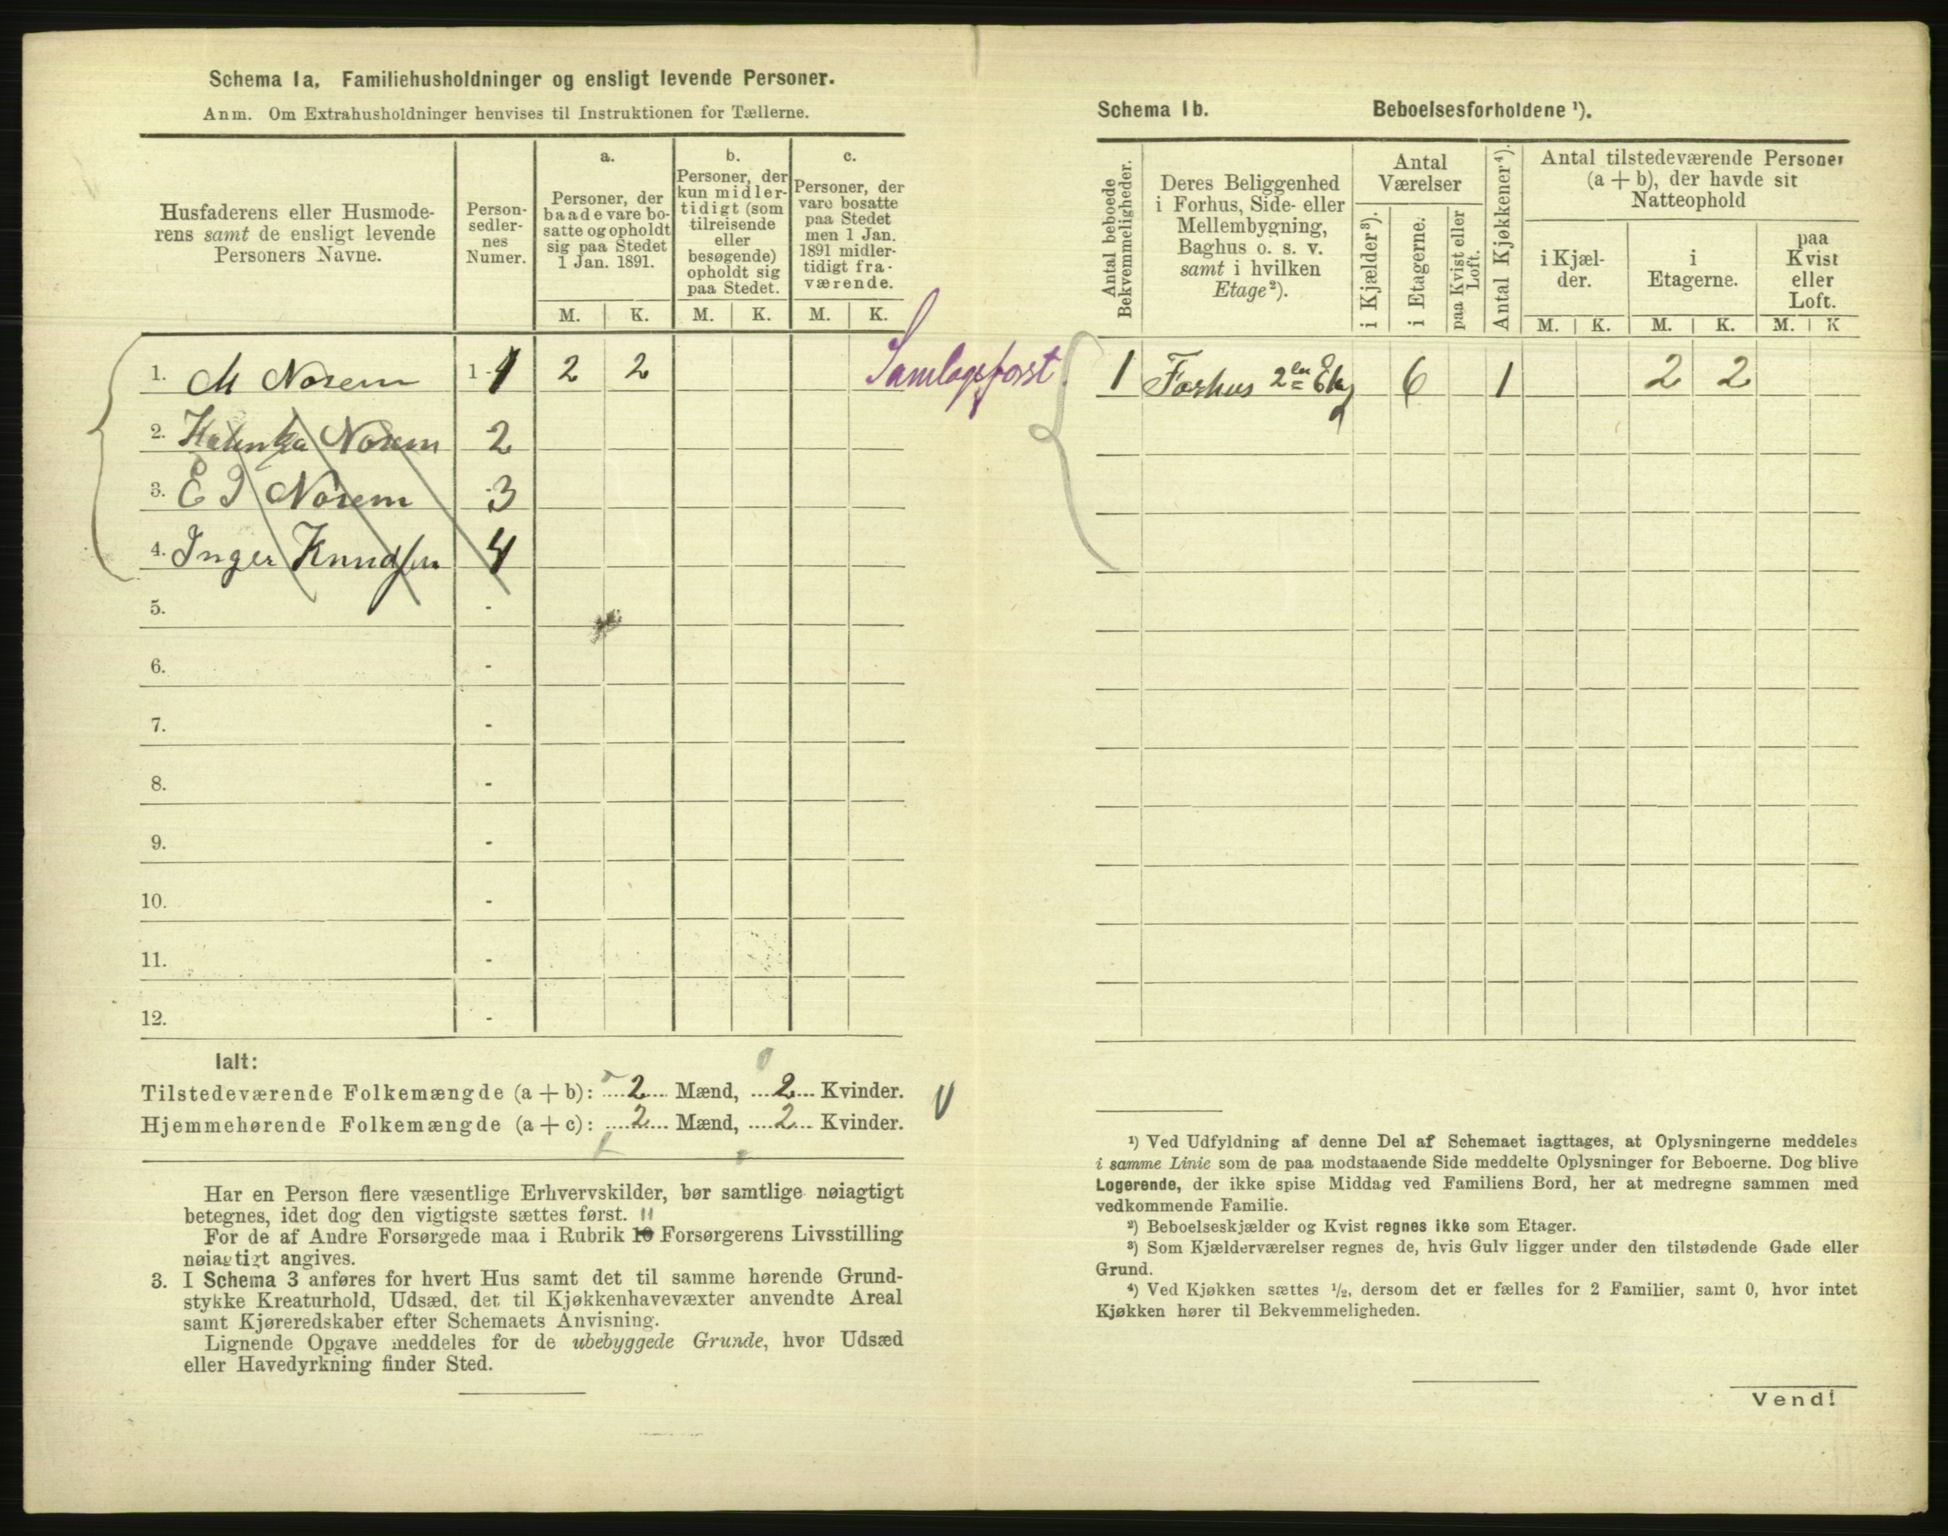 Schema 1a. Familiehusholdninger og ensligt levende Personer.
Anm. Om Extrahusholdninger henvises til Instruktionen for Tællerne.
Husfaderens eller Husmode-
rens samt de ensligt levende
Personers Navne.
Person-
sedler-
nes
Numer.
a.
Personer, der
baade vare bo-
satte og opholdt
sig paa Stedet
1 Jan. 1891.
b.
Personer, der
kun midler-
tidigt (som
tilreisende
eller
besøgende)
opholdt sig
paa Stedet.
c.
Personer, der
vare bosatte
paa Stedet
men 1 Jan.
1891 midler-
tidigt fra-
værende.
M. K. M. K. M. K.
1. M Norem 1-1 2 2
2. Norem 2
3. E I Norem 3
4. Inger Knudsen 4
5. -
6. -
7. -
8. -
9. -
10. -
11. -
12. -
Ialt:
Tilstedeværende Folkemængde (a + b): 2 Mænd, 2 Kvinder.
Hjemmehørende Folkemængde (a + c): 2 Mænd, 2 Kvinder.
Har en Person flere væsentlige Erhvervskilder, bør samtlige nøiagtigt
betegnes, idet dog den vigtigste sættes først.
11
For de af Andre Forsørgede maa i Rubrik 10 Forsørgerens Livsstilling
nøiagtigt angives.
3. I Schema 3 anføres for hvert Hus samt det til samme hørende Grund-
stykke Kreaturhold, Udsæd, det til Kjøkkenhavevæxter anvendte Areal
samt Kjøreredskaber efter Schemaets Anvisning.
Lignende Opgave meddeles for de ubebyggede Grunde, hvor Udsæd
eller Havedyrkning finder Sted.
Samlagsforst.
Schema 1b. Beboelsesforholdene ¹).
Antal beboede
Bekvemmeligheder.
Deres Beliggenhed
i Forhus, Side- eller
Mellembygning,
Baghus o. s. v.
samt i hvilken
Etage²).
Antal
Værelser
i Kjælder³).
i Etagerne.
paa Kvist eller
Loft.
Antal Kjøkkener⁴).
Antal tilstedeværende Personer
(a + b), der havde sit
Natteophold
i Kjæl-
der.
i
Etagerne.
paa
Kvist
eller
Loft.
M. K. M. K. M. K
1 Forhus 2den Etg 6 1 2 2
¹) Ved Udfyldning af denne Del af Schemaet iagttages, at Oplysningerne meddeles
i samme Linie som de paa modstaaende Side meddelte Oplysninger for Beboerne. Dog blive
Logerende, der ikke spise Middag ved Familiens Bord, her at medregne sammen med
vedkommende Familie.
²) Beboelseskjælder og Kvist regnes ikke som Etager.
³) Som Kjælderværelser regnes de, hvis Gulv ligger under den tilstødende Gade eller
Grund.
⁴) Ved Kjøkken sættes ½, dersom det er fælles for 2 Familier, samt 0, hvor intet
Kjøkken hører til Bekvemmeligheden.
Vend!